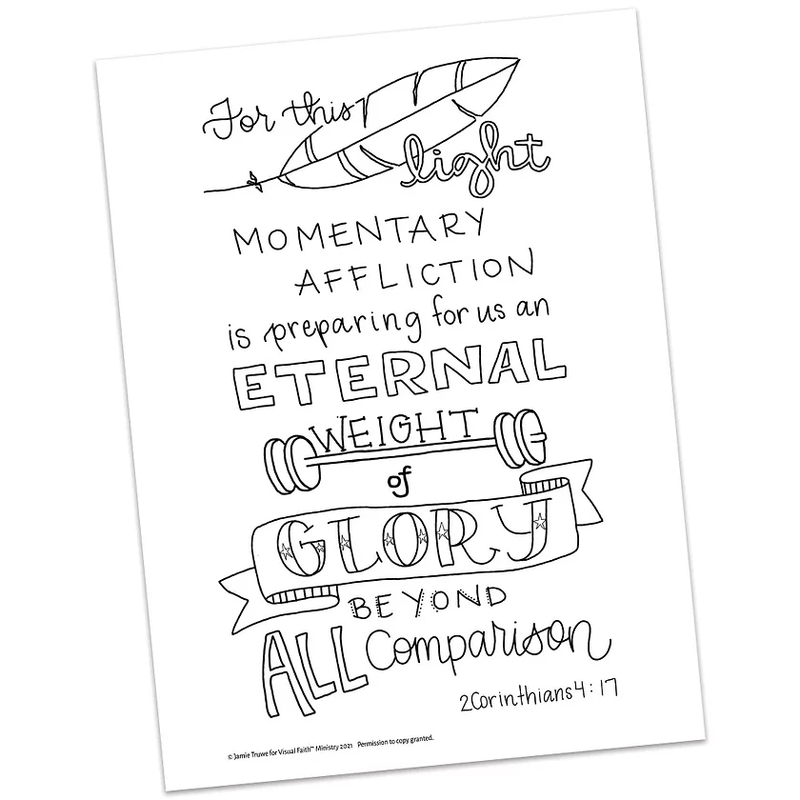 For this
light
MOMENTARY
AFFLICTION
is preparing for us an
ETERNAL
WEIGHT
of
GLORY
BEYOND
ALL Comparison
2Corinthians 4:17
© Jamie Truwe for Visual Faith™ Ministry 2021 Permission to copy granted.